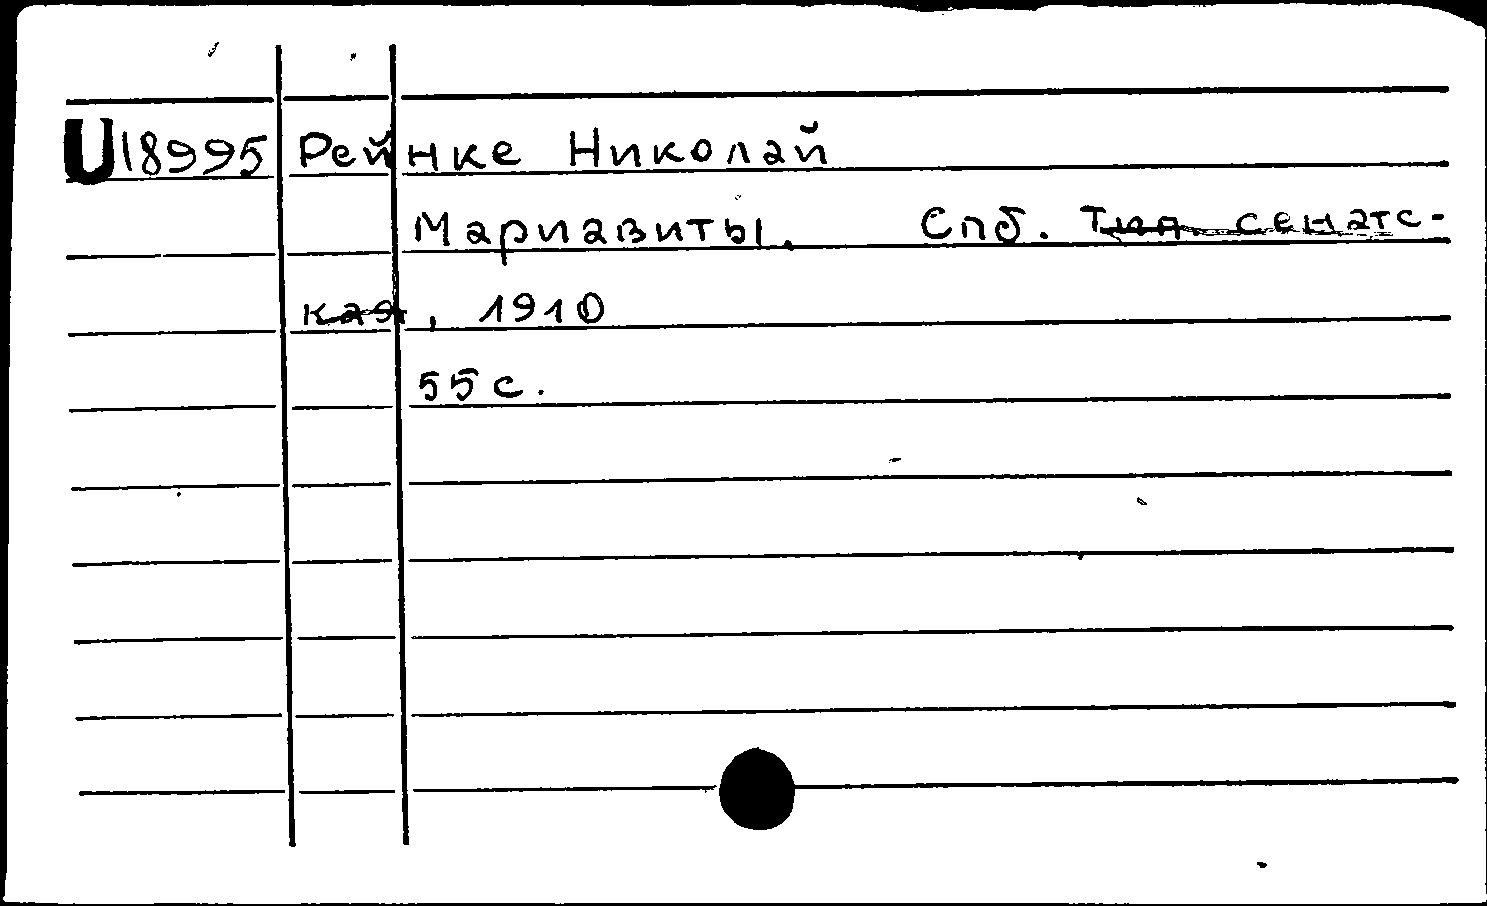 U18995 Рейнке Николай
Мариавиты. Спб. Тип сенатс-
кая, 1910
55 с.